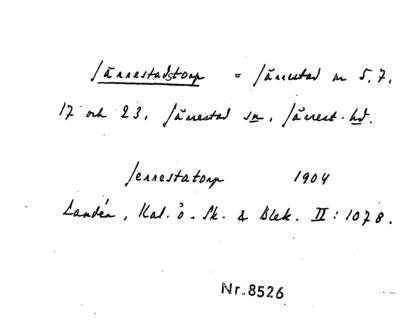 Järrestadstorp = Järrestad nr 5, 7,
17 och 23, Järrestad sn, Järrest. hd.
Jerrestatorp 1904
Landén, Kal. ö. Sk. & Blek. II: 1078.
Nr.8526